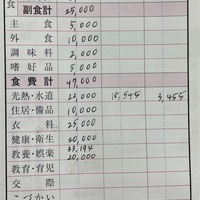 食 副食計 25,000
主食 5,000
外食 10,000
調味料 2,000
嗜好品 5,000
食費計 47,000
光熱・水道 22,000 18,545 3,455
住居・備品 10,000
衣料 25,000
健康・衛生 20,000
教養・娯楽 33,194
20,000
教育・育児
交際
こづかい